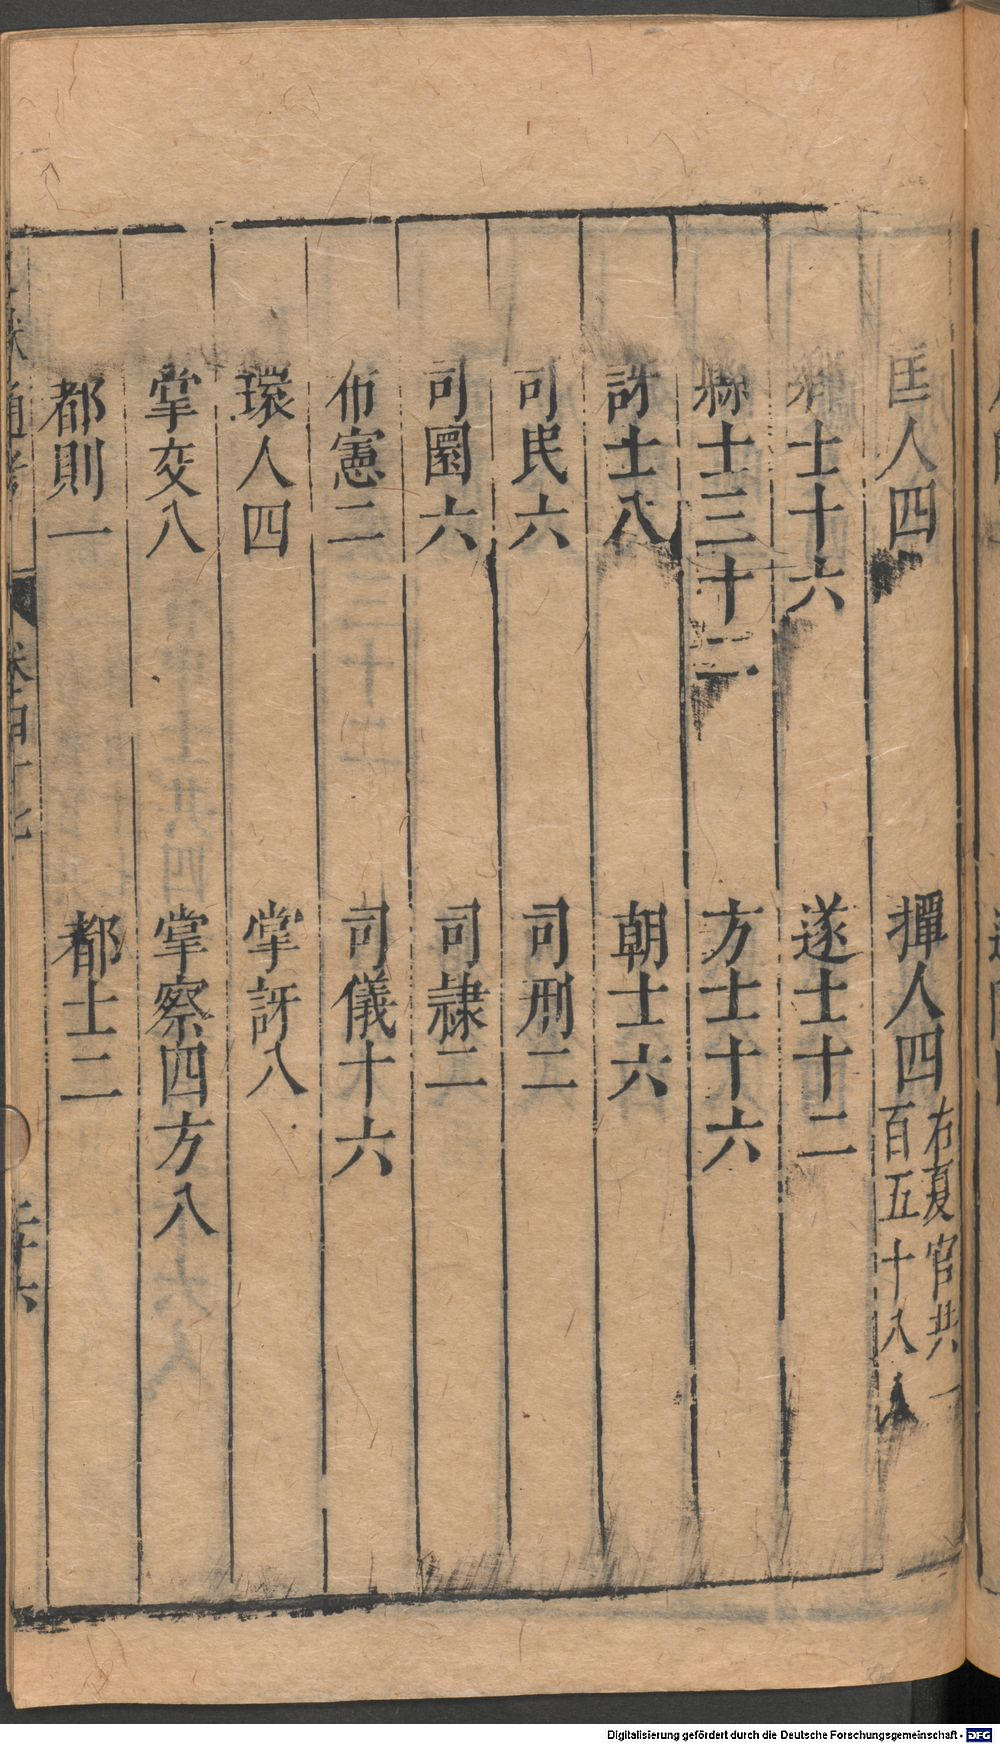 匡人四　撣人四右夏官共一百五十八人
鄉士十六　遂士十二
縣士三十二　方士十六
訝士八　朝士六
司民六　司刑二
司圜六　司隷二
布憲二　司儀十六
環人四　掌訝八
掌交八　掌察四方八
都則一　都士二
通考
Digitalisierung gefördert durch die Deutsche Forschungsgemeinschaft - DFG